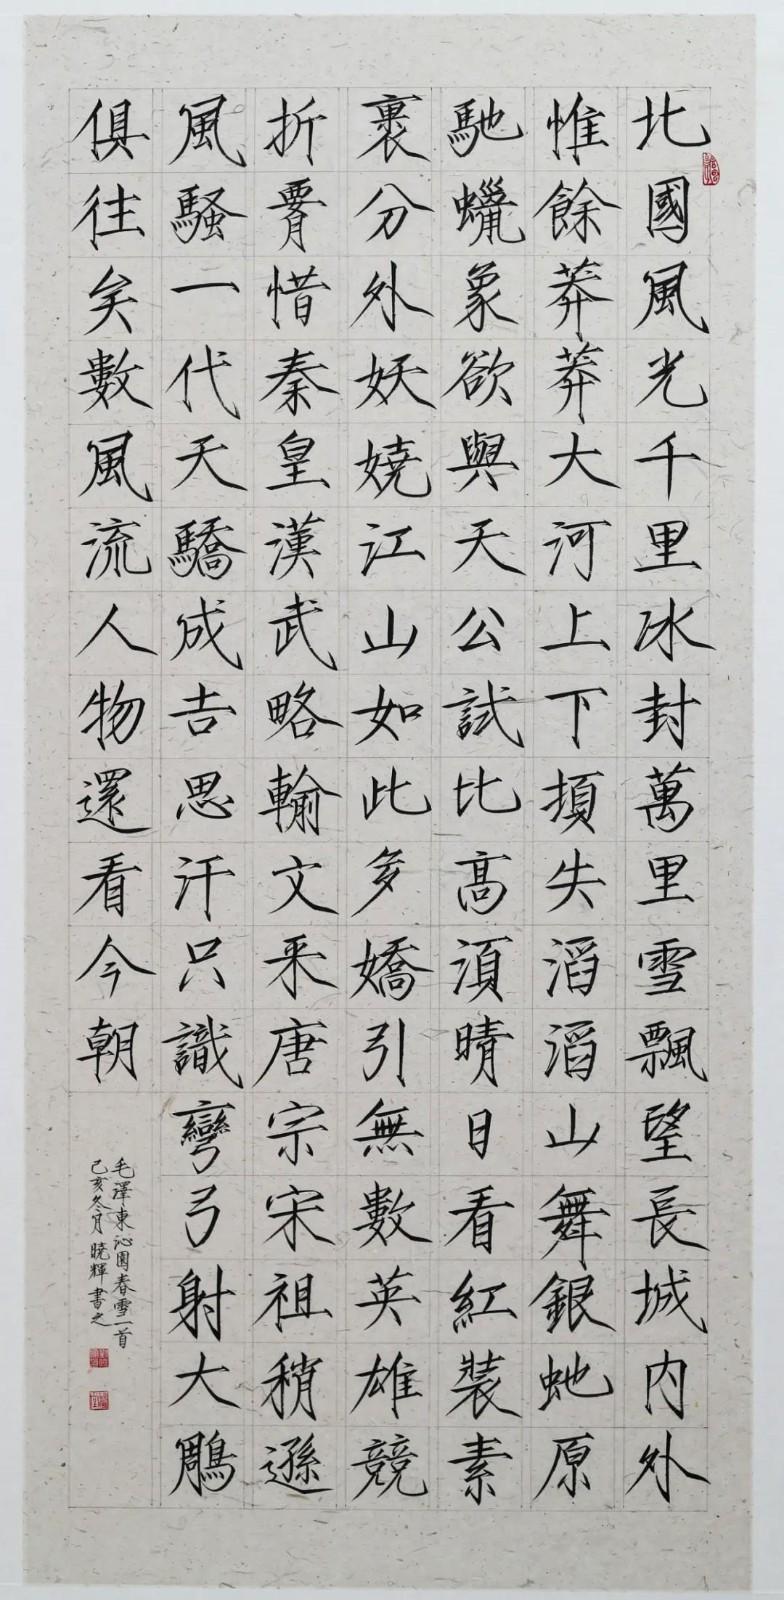 北國風光千里冰封萬里雪飄望長城內外
惟餘莽莽大河上下頓失滔滔山舞銀虵原
馳蠟象欲與天公試比高須晴日看紅裝素
裹分外妖嬈江山如此多嬌引無數英雄競
折腰惜秦皇漢武略輸文采唐宗宋祖稍遜
風騷一代天驕成吉思汗只識彎弓射大鵰
俱往矣數風流人物還看今朝
毛澤東沁園春雪一首
己亥冬月曉輝書之